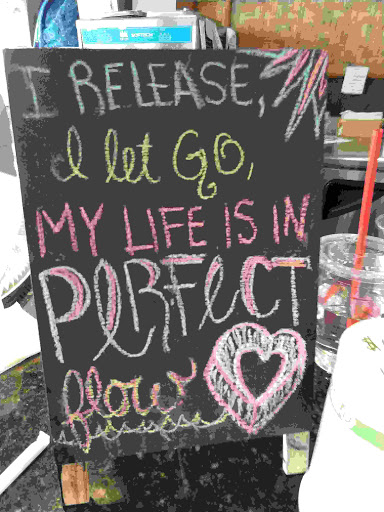 I RELEASE,
I let GO,
MY LIFE IS IN
PERFECT
flow